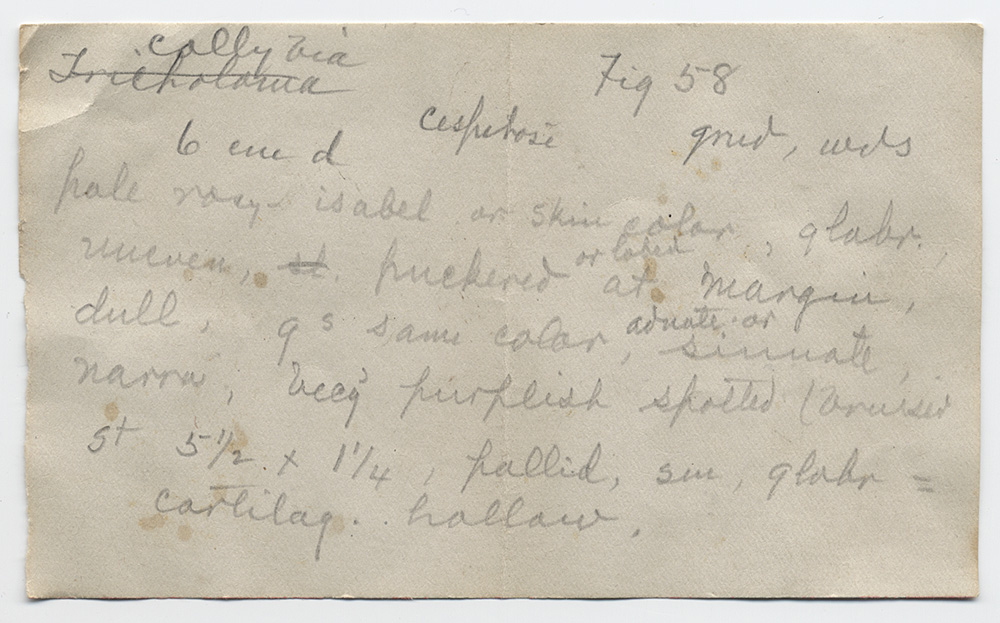 Collybia
Tricholoma Fig 58
6 cm d cespitose grnd, wds
pale rosy-isabel or skin color, glabr.,
uneven, st. puckered or lobed at margin,
dull, gs same color, adnate or sinuate,
narrow, becg purplish spotted (bruised
St 5 1/2 x 1 1/4, pallid, sm, glabr =
cartilag. hollow.